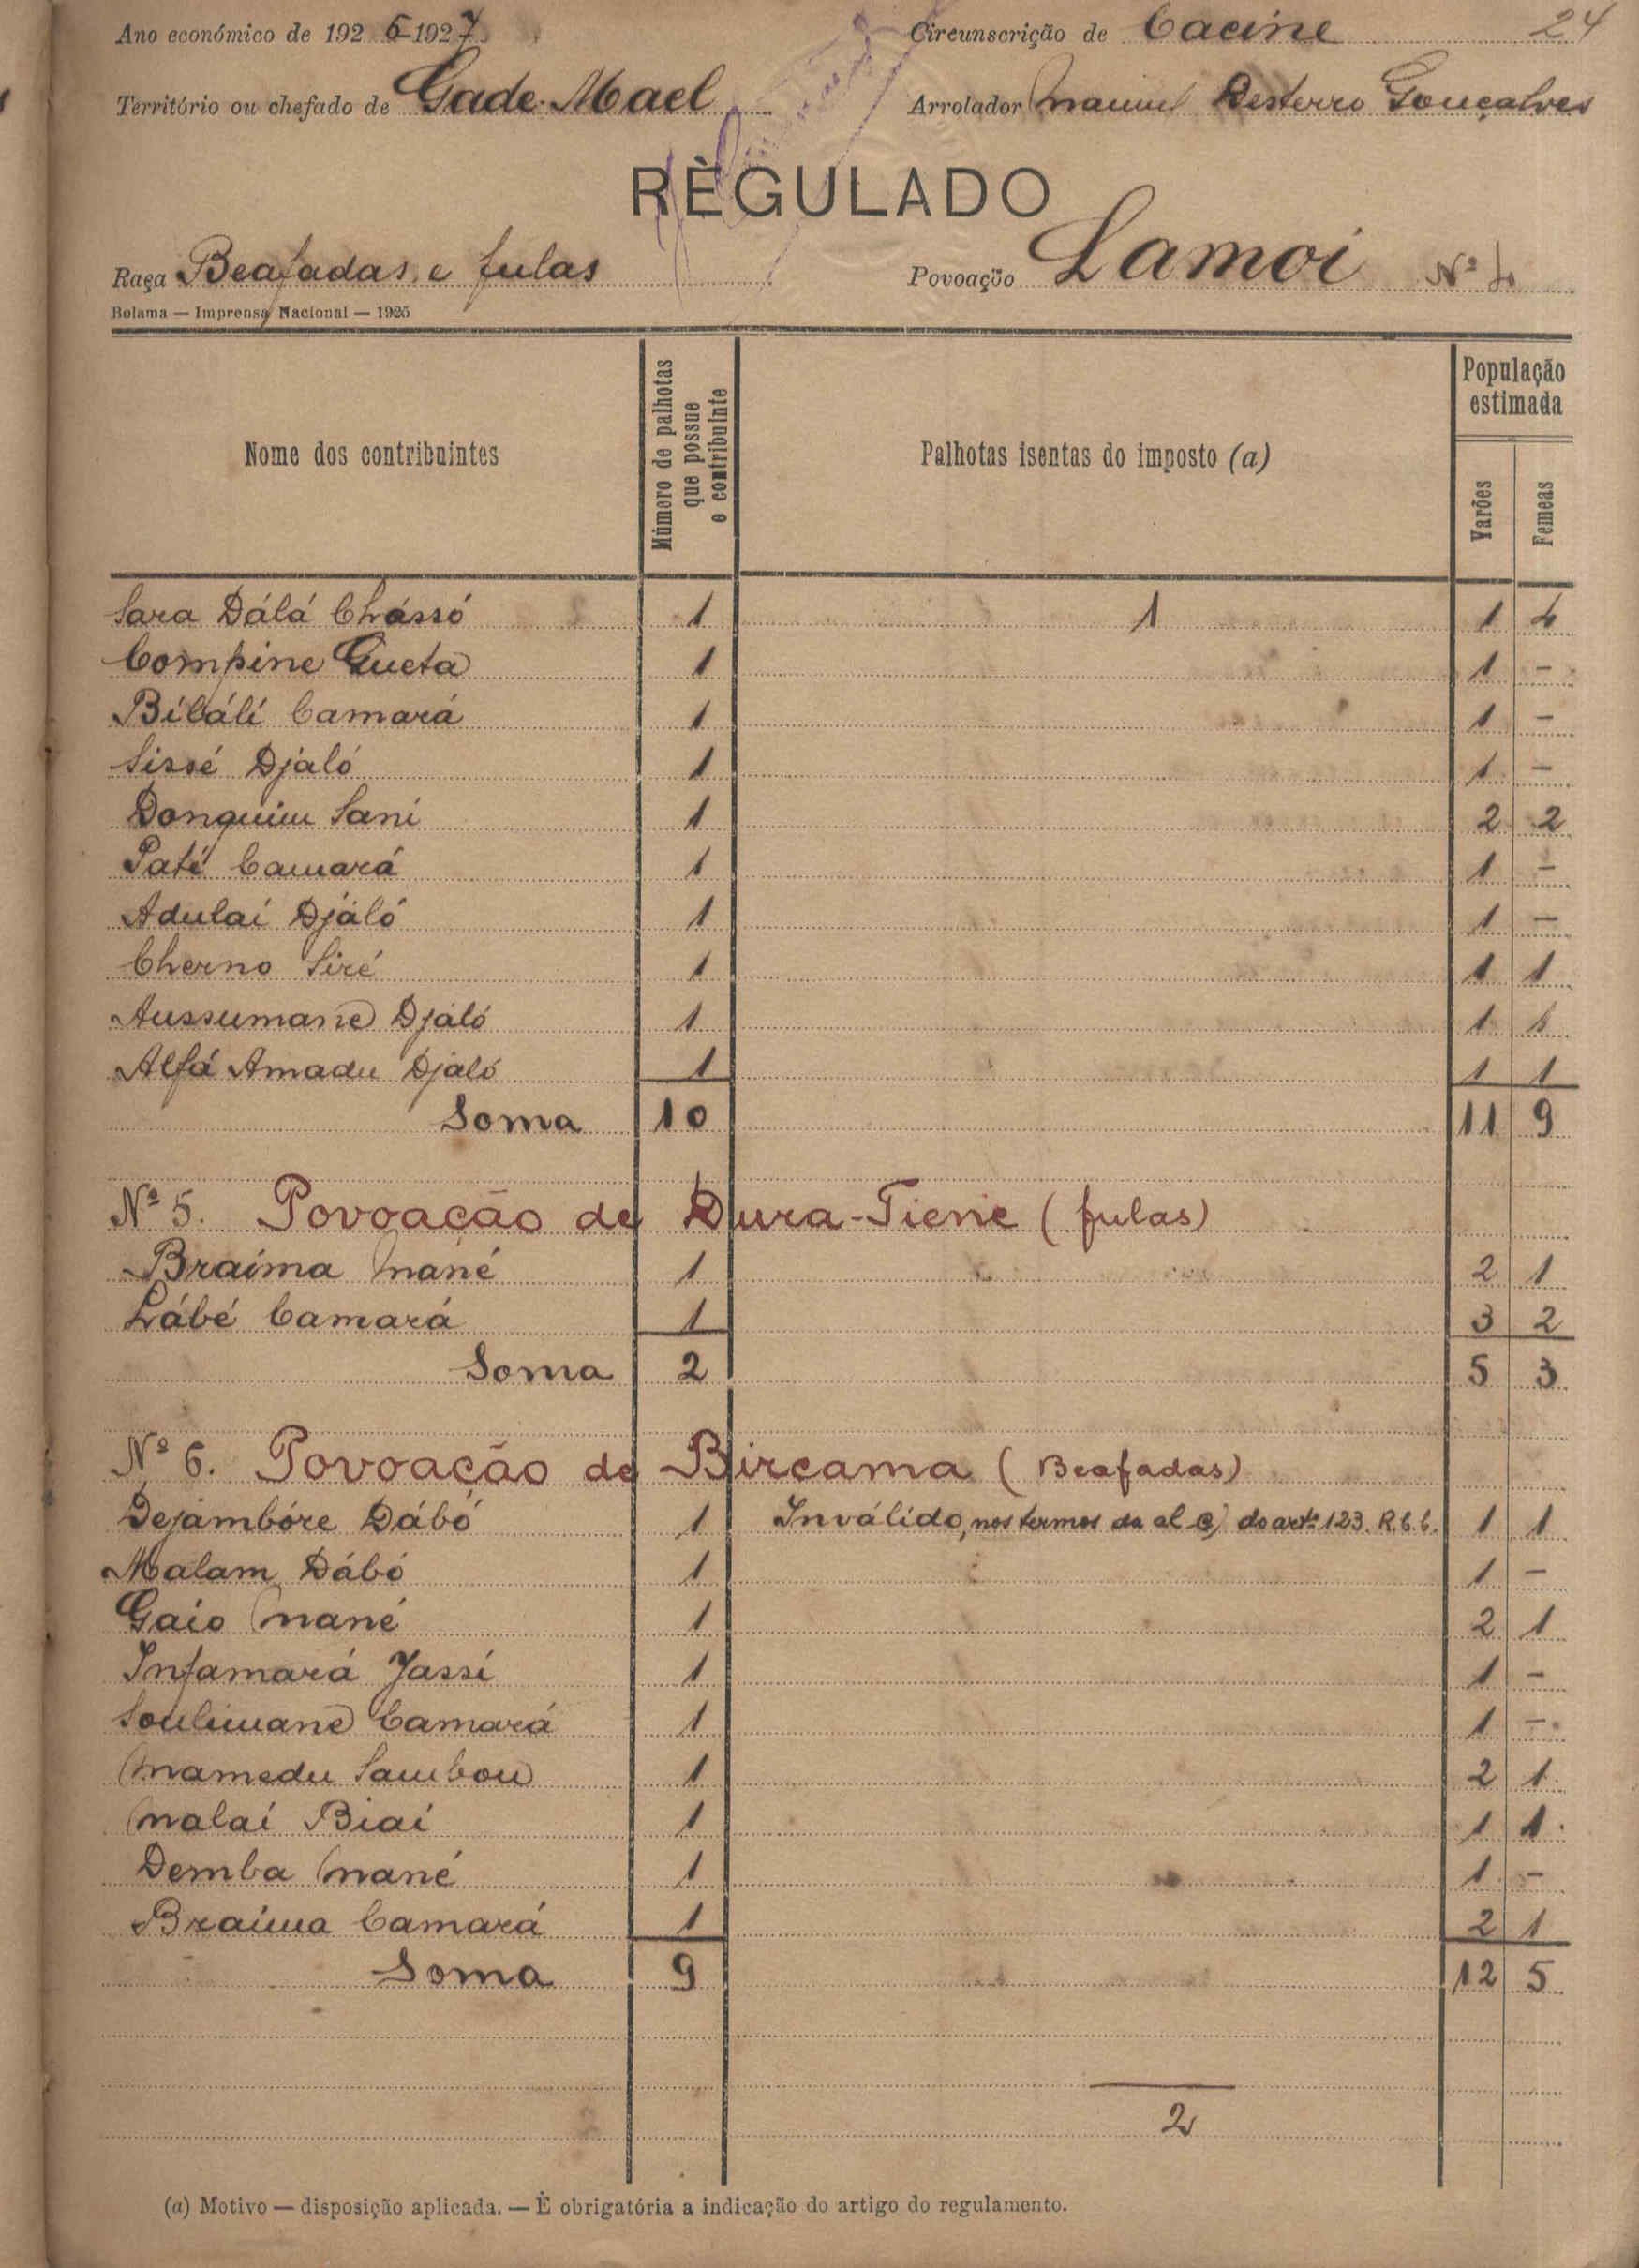 Ano económico de 1926-1927 Circunscrição de Cacine 24
Território ou chefado de Gade-Mael Arrolador Manuel Desterro Gonçalves
RÈGULADO
Raça Beafadas e fulas Povoação Lamoi Nº 4
Bolama — Imprensa Nacional — 1925
Nome dos contribuintes Número de palhotas que possue o contribuinte Palhotas isentas do imposto (a) População estimada
Varões Femeas
Sara Dálá Chássó 1 1 1 4
Compine Gueta 1 1 -
Bílálí Camará 1 1 -
Sissé Djaló 1 1 -
Donquim Sani 1 2 2
Paté Camará 1 1 -
Adulai Djáló 1 1 -
Cherno Siré 1 1 1
Aussumane Djaló 1 1 1
Alfá Amadu Djaló 1 1 1
Soma 10 11 9
Nº 5. Povoação de Dura-Tiene (fulas)
Braima Mané 1 2 1
Lábé Camará 1 3 2
Soma 2 5 3
Nº 6. Povoação de Bircama (Beafadas)
Dejambóre Dábó 1 Inválido, nos termos da al e) do artº 123. R.C.C. 1 1
Malam Dábó 1 1 -
Gaio Mané 1 2 1
Infamará Jassi 1 1 -
Soulimane Camará 1 1 -
Mamadu Sambou 1 2 1
Malai Biai 1 1 1
Demba Mané 1 1 -
Braima Camará 1 2 1
Soma 9 12 5
2
(a) Motivo — disposição aplicada. — É obrigatória a indicação do artigo do regulamento.